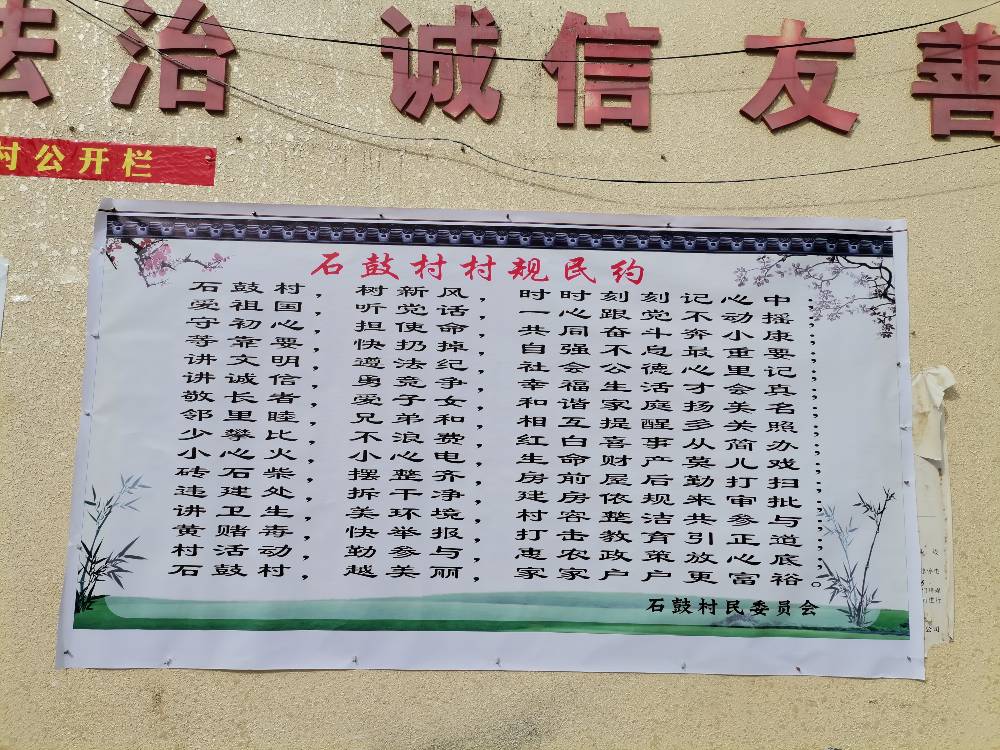 法治 诚信 友善
村公开栏
石鼓村村规民约
石鼓村，树新风，时时刻刻记心中，
爱祖国，听党话，一心跟党不动摇，
守初心，担使命，共同奋斗奔小康，
等靠要，快扔掉，自强不息最重要，
讲文明，遵法纪，社会公德心里记，
讲诚信，勇竞争，幸福生活才会真，
敬长者，爱子女，和谐家庭扬美名，
邻里睦，兄弟和，相互提醒多关照，
少攀比，不浪费，红白喜事从简办，
小心火，小心电，生命财产莫儿戏，
砖石柴，摆整齐，房前屋后勤打扫，
违建处，拆干净，建房依规来审批，
讲卫生，美环境，村容整洁共参与，
黄赌毒，快举报，打击教育引正道，
村活动，勤参与，惠农政策放心底，
石鼓村，越美丽，家家户户更富裕。
石鼓村民委员会
公司